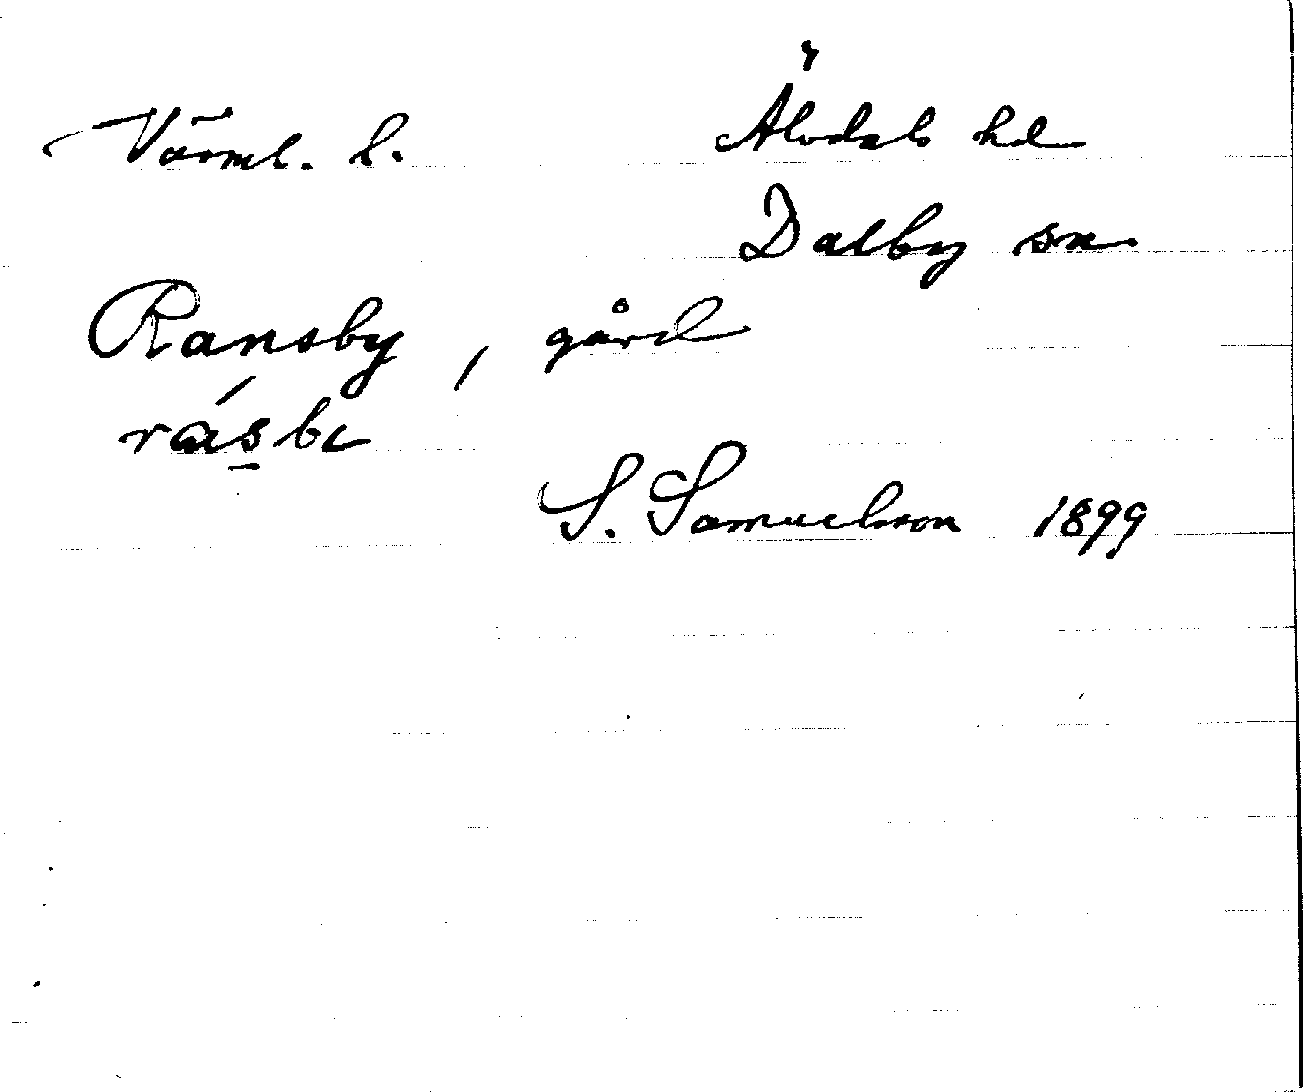 Värml. l. Älvdals hd
Dalby sn
Ransby, gård
rásbɩ
S. Samuelsson 1899